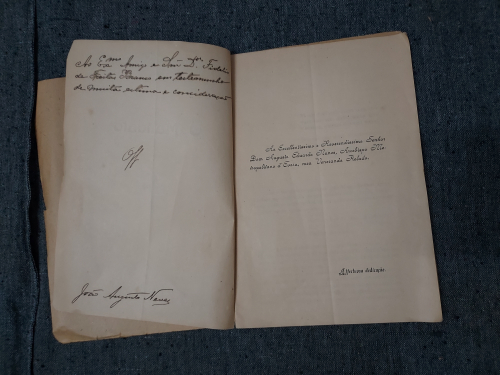 Ao Exmo Amigo e Snr. Dr. Fidelio
de Freitas Branco em testemunho
de muita estima e consideração
Off
João Augusto Nunes
Ao Excellentissimo e Reverendissimo Senhor
Dom Augusto Eduardo Nunes, Arcebispo Me-
tropolitano d'Evora, meu Venerando Prelado:
Affectuosa dedicação